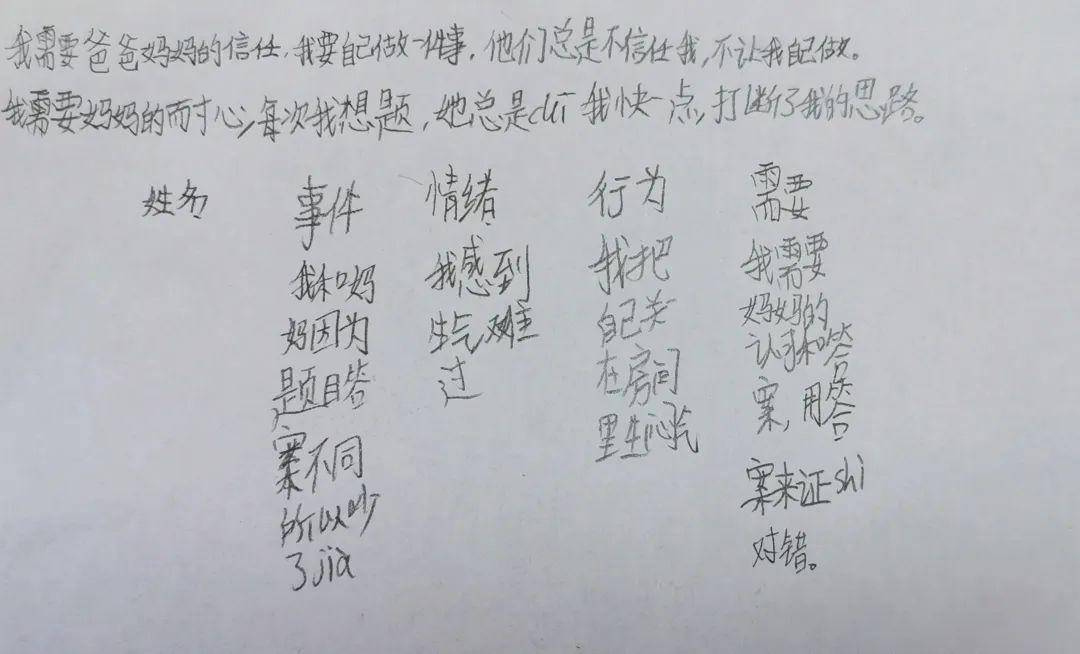 我需要爸爸妈妈的信任，我要自己做一件事，他们总是不信任我，不让我自己做。
我需要妈妈的耐心，每次我想题，她总是cuī我快一点，打断了我的思路。
姓名 事件 情绪 行为 需要
我和妈 我感到 我把 我需要
妈因为 生气难 自己关 妈妈的
题目答 过 在房间 认可和答
案不同 里生闷气 案，用答
所以吵 案来证shi
了jia 对错。